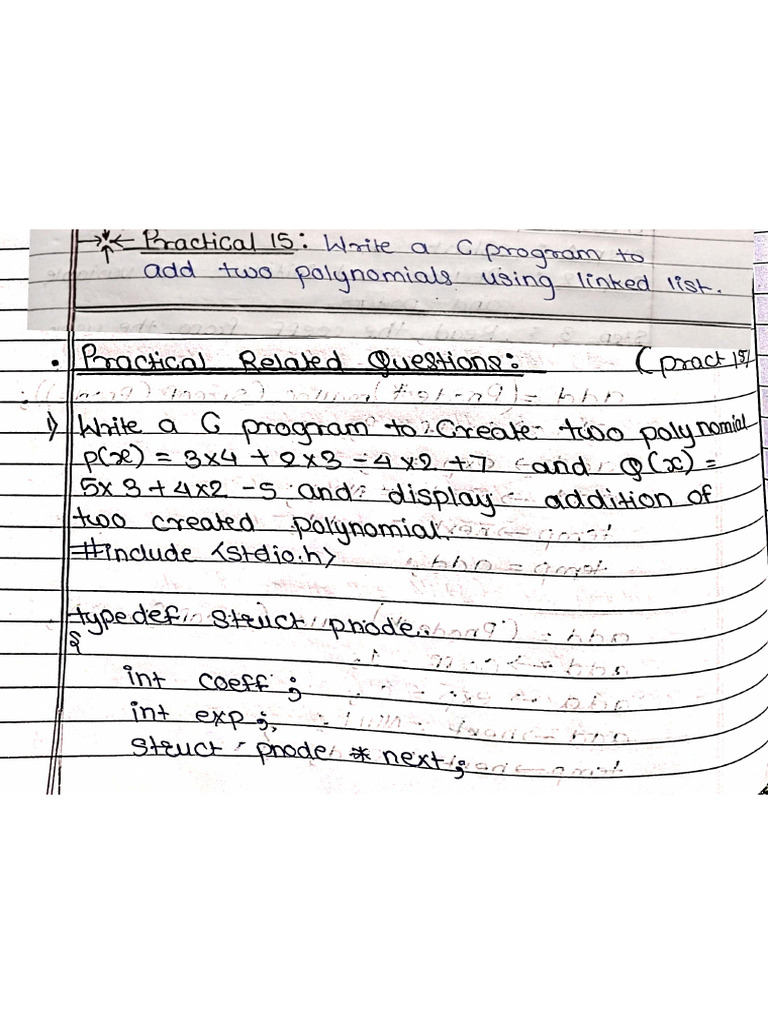 Practical 15: Write a C program to
add two polynomials using linked list.
Practical Related Questions: (pract 15)
1) Write a C program to Create two polynomial
p(x) = 3x4 + 2x3 - 4x2 + 7 and Q(x) =
5x3 + 4x2 - 5 and display addition of
two created polynomial.
#include <stdio.h>
typedef struct pnode
{
int coeff;
int exp;
struct pnode * next;